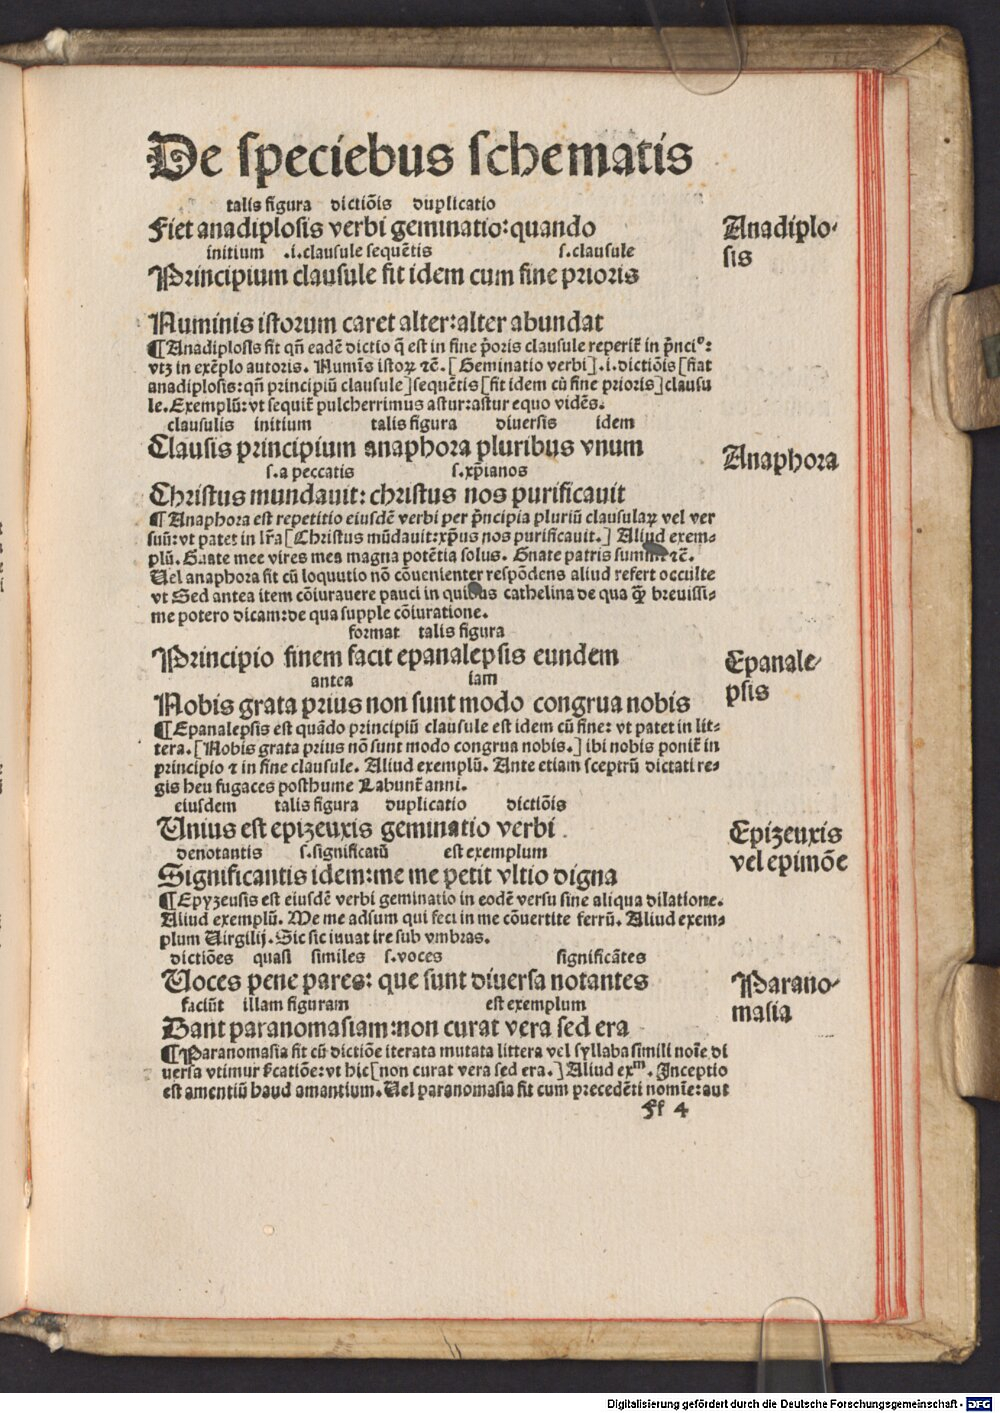 De speciebus schematis
talis figura dictiõis duplicatio
Fiet anadiplosis verbi geminatio: quando
Anadiplo-
sis
initium .i. clausule sequẽtis s. clausule
Principium clausule fit idem cum fine prioris
Numinis istorum caret alter: alter abundat
¶ Anadiplosis fit qñ eadẽ dictio q̃ est in fine p̃oris clausule reperit̃ in p̃ncio:
vtz in exẽplo autoris. Numĩs istoꝝ ⁊c̃. [Geminatio verbi] .i. dictiõis [fiat
anadiplosis: qñ principiũ clausule] sequẽtis [fit idem cũ fine prioris] clausu
le. Exemplũ: vt sequit̃ pulcherrimus astur: astur equo vidẽs.
clausulis initium talis figura diuersis idem
Clausis principium anaphora pluribus vnum
Anaphora
s. a peccatis s. xp̃ianos
Christus mundauit: christus nos purificauit
¶ Anaphora est repetitio eiusdẽ verbi per p̃ncipia pluriũ clausulaꝝ vel ver
suũ: vt patet in lr̃a [Christus mũdauit: xp̃us nos purificauit.] Aliud exem-
plũ. Gnate mee vires mea magna potẽtia solus. Gnate patris summi ⁊c̃.
Uel anaphora fit cũ loquutio nõ cõuenienter respõdens aliud refert occulte
vt Sed antea item cõiurauere pauci in quibus cathelina de qua q̃ꝫ breuissi-
me potero dicam: de qua supple cõiuratione.
format talis figura
Principio finem facit epanalepsis eundem
Epanale-
psis
antea iam
Nobis grata prius non sunt modo congrua nobis
¶ Epanalepsis est quãdo principiũ clausule est idem cũ fine: vt patet in lit-
tera. [Nobis grata prius nõ sunt modo congrua nobis.] ibi nobis ponit̃ in
principio ⁊ in fine clausule. Aliud exemplũ. Ante etiam sceptrũ dictati re-
gis heu fugaces posthume Labunt̃ anni.
eiusdem talis figura duplicatio dictiõis
Unius est epizeuxis geminatio verbi
Epizeuxis
vel epimõe
denotantis s. significatũ est exemplum
Significantis idem: me me petit vltio digna
¶ Epyzeusis est eiusdẽ verbi geminatio in eodẽ versu sine aliqua dilatione.
Aliud exemplũ. Me me adsum qui feci in me cõuertite ferrũ. Aliud exem-
plum Uirgilij. Sic sic iuuat ire sub vmbras.
dictiões quasi similes s. voces significãtes
Uoces pene pares: que sunt diuersa notantes
Parano-
masia
faciũt illam figuram est exemplum
Dant paranomasiam: non curat vera sed era
¶ Paranomasia fit cũ dictiõe iterata mutata littera vel syllaba simili noĩe di
uersa vtimur s̃catiõe: vt hic [non curat vera sed era.] Aliud exm. Inceptio
est amentiũ haud amantium. Uel paranomasia fit cum precedẽti nomĩe: aut
Ff 4
Digitalisierung gefördert durch die Deutsche Forschungsgemeinschaft - DFG